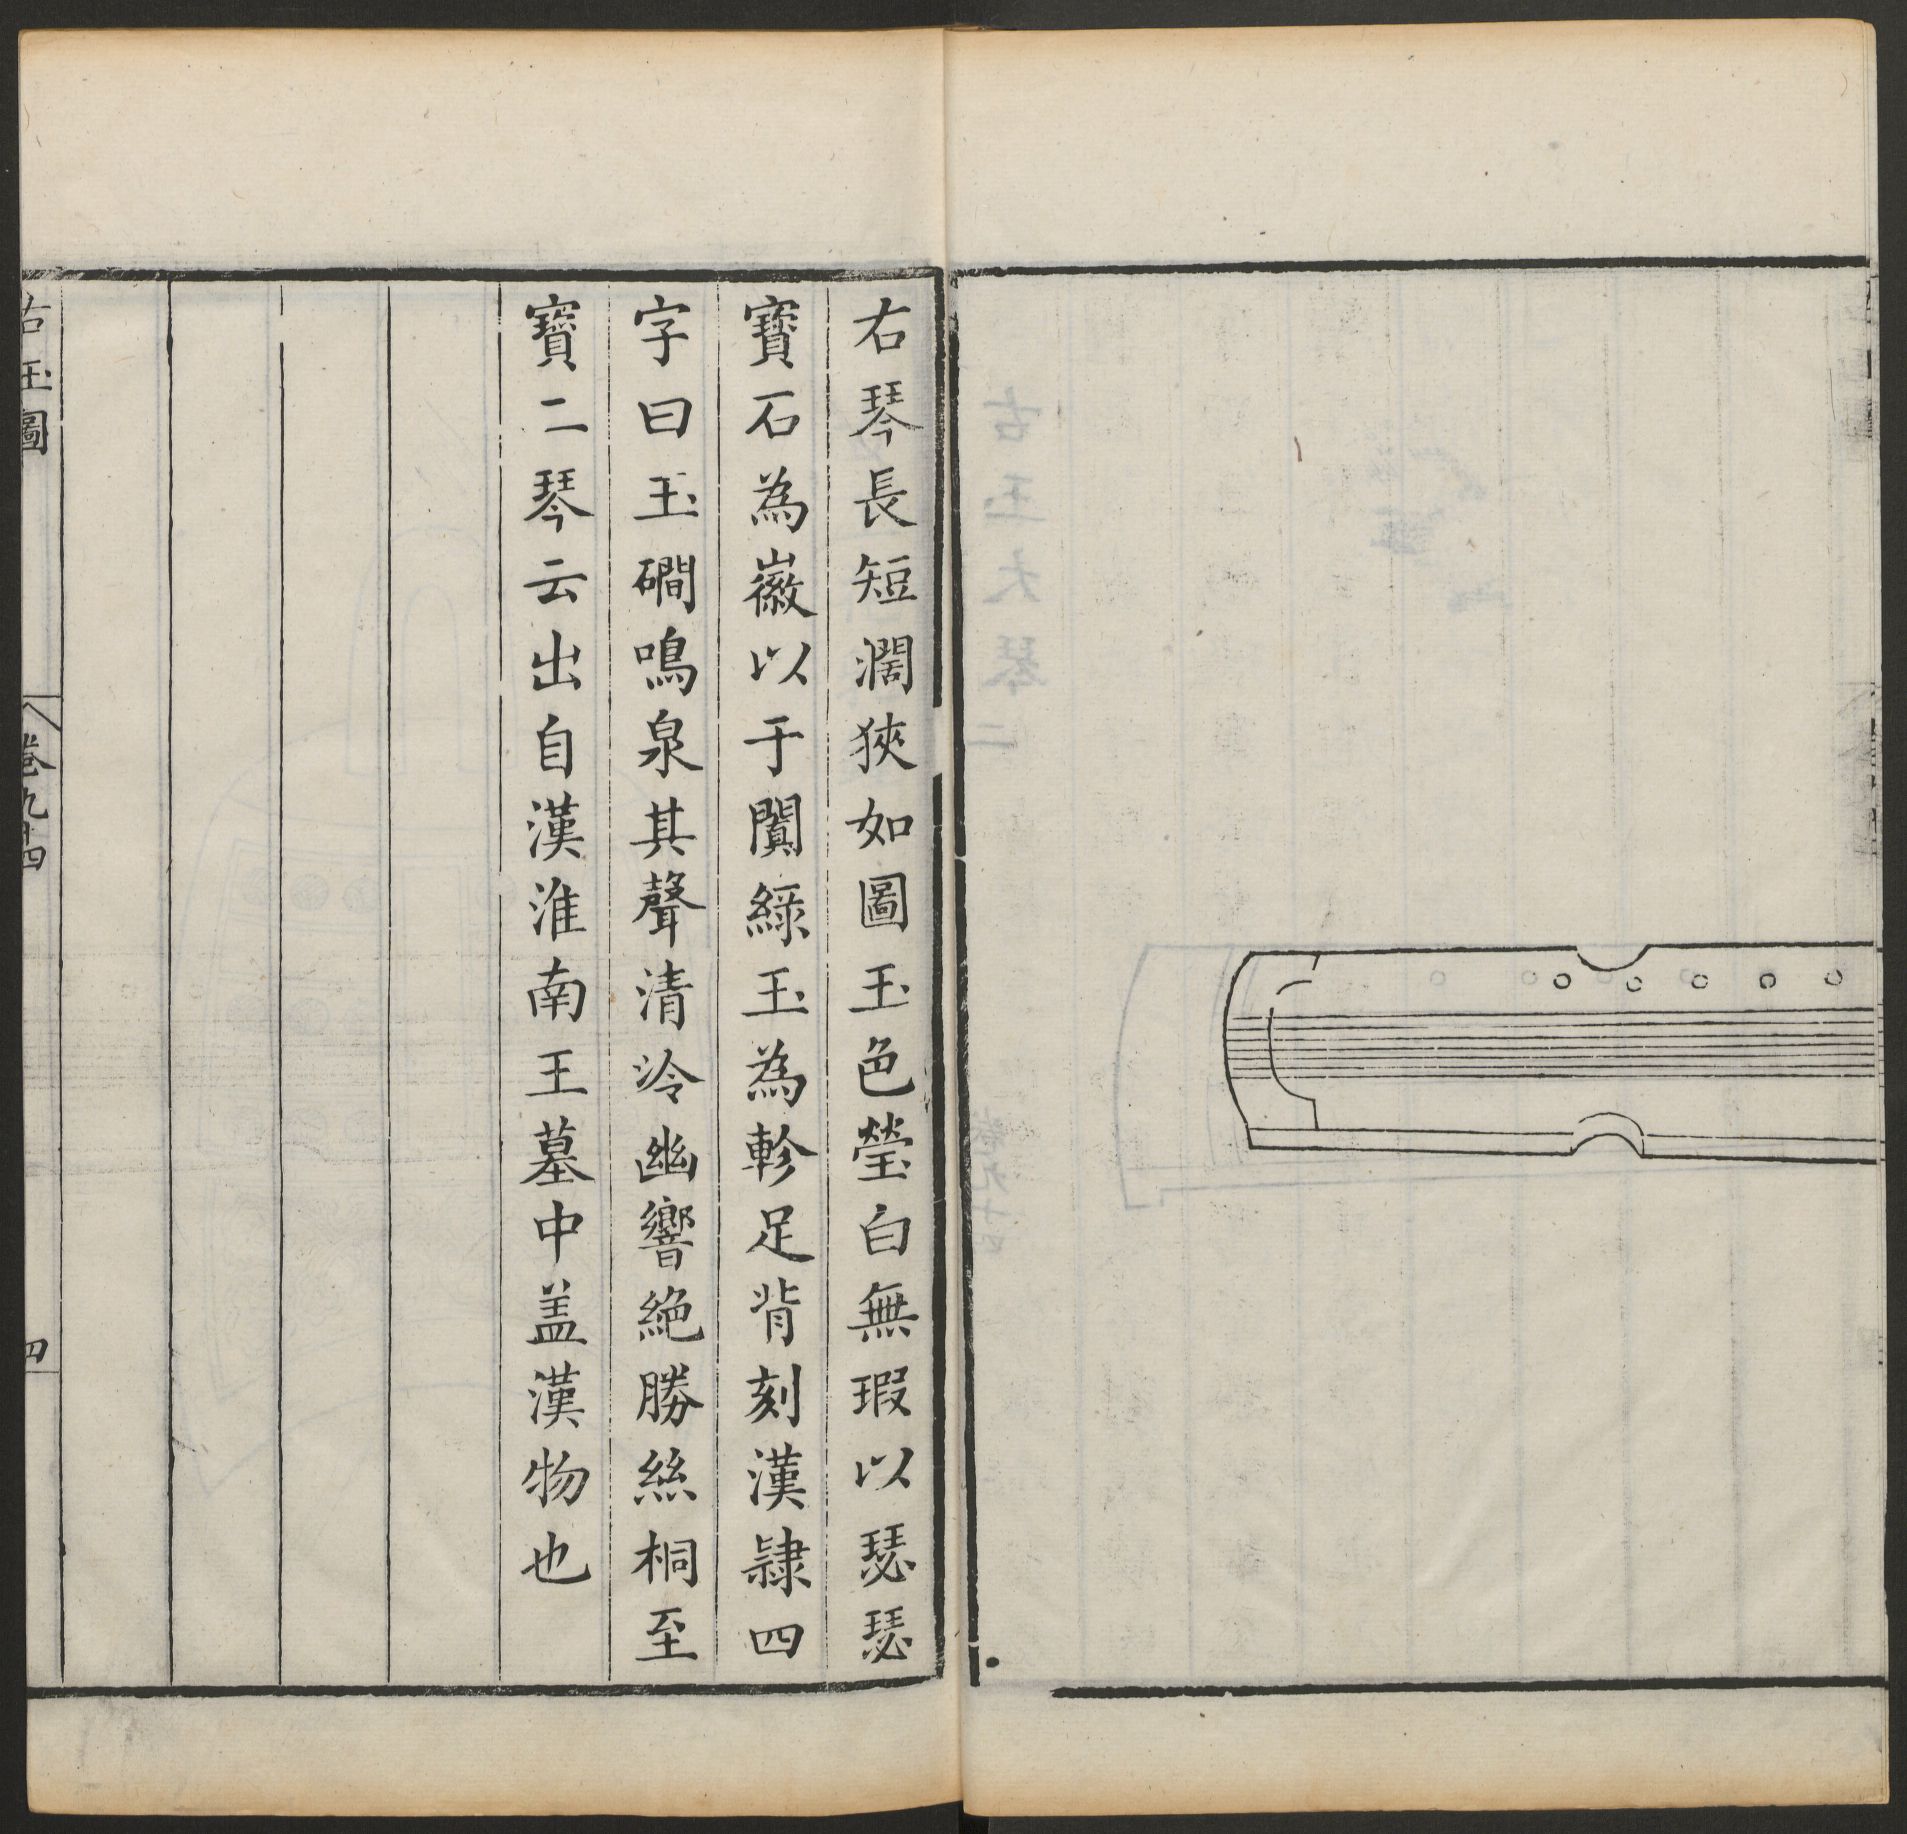 右琴長短濶狹如圖玉色瑩白無瑕以瑟瑟
寶石為徽以于闐綠玉為軫足背刻漢隸四
字曰玉磵鳴泉其聲清泠幽響絶勝絲桐至
寶二琴云出自漢淮南王墓中盖漢物也
古玉圖
卷九十四
四